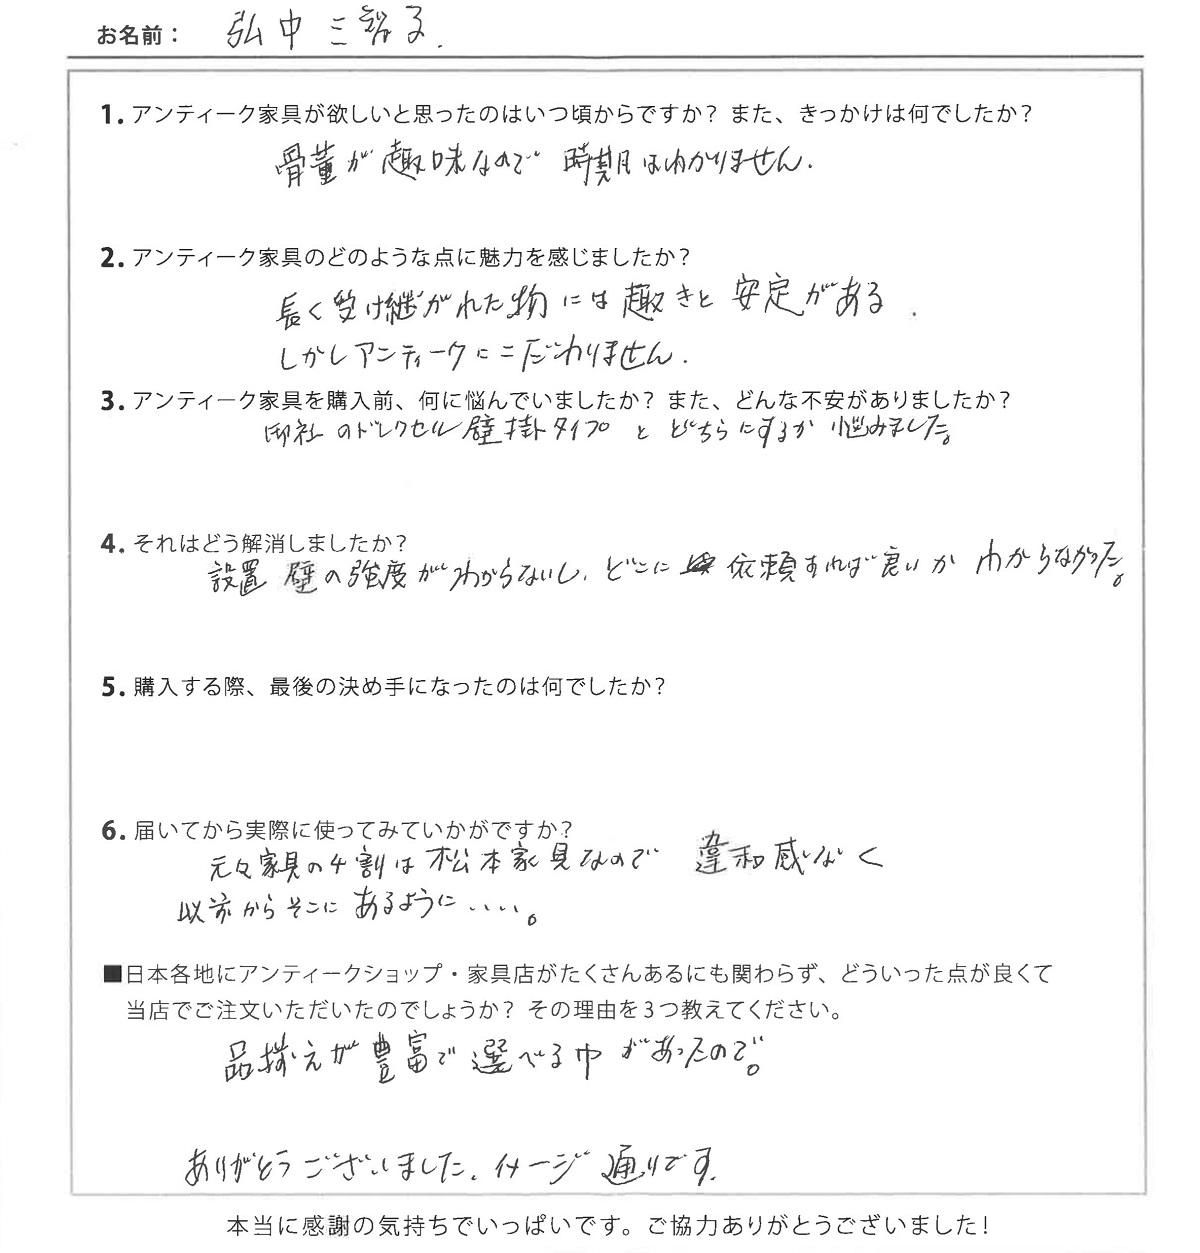 お名前： 弘中三智子.
1. アンティーク家具が欲しいと思ったのはいつ頃からですか？ また、きっかけは何でしたか？
骨董が趣味なので 時期はわかりません.
2. アンティーク家具のどのような点に魅力を感じましたか？
長く受け継がれた物には趣きと安定がある.
しかしアンティークにこだわりません.
3. アンティーク家具を購入前、何に悩んでいましたか？ また、どんな不安がありましたか？
のドレクセル壁掛タイプとどちらにするか悩みました。
4. それはどう解消しましたか？
設置壁の強度がわからないし、どこに依頼すれば良いかわからなかった。
5. 購入する際、最後の決め手になったのは何でしたか？
6. 届いてから実際に使ってみていかがですか？
元々家具の4割は松本家具なので 違和感なく
以前からそこにあるように・・・・。
■日本各地にアンティークショップ・家具店がたくさんあるにも関わらず、どういった点が良くて
当店でご注文いただいたのでしょうか？ その理由を3つ教えてください。
品揃えが豊富で選べる巾があったので。
ありがとうございました。イメージ通りです.
本当に感謝の気持ちでいっぱいです。ご協力ありがとうございました！